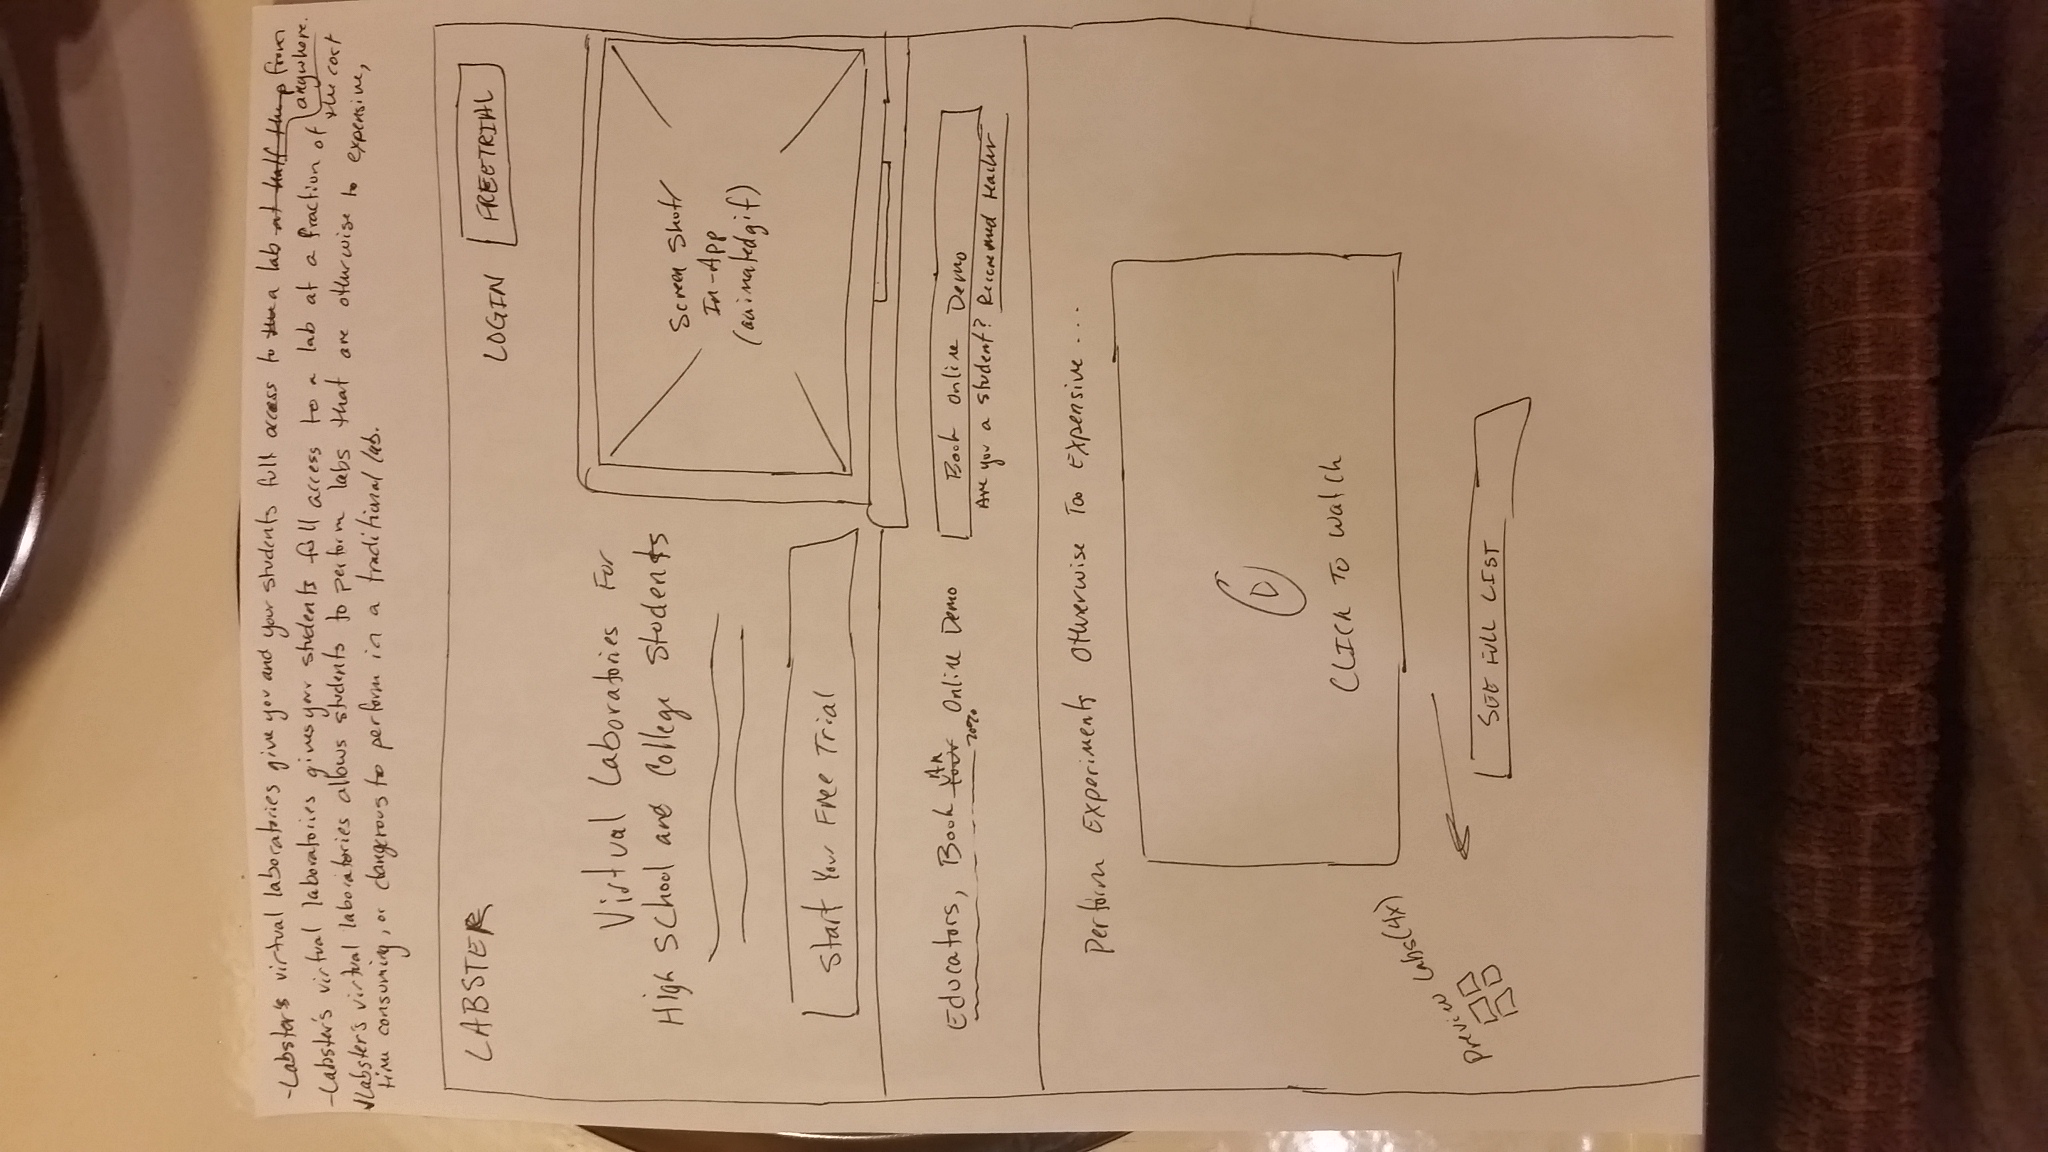 -Labster's virtual laboratories give you and your students full access to the a lab at half the p from
anywhere.
-Labster's virtual laboratories gives your students full access to a lab at a fraction of the cost
Labster's virtual laboratories allows students to perform labs that are otherwise to expensive,
time consuming, or dangerous to perform in a traditional lab.
LABSTER
LOGIN
FREETRIAL
Virtual Laboratories For
High School and College Students
Screen Shot/
In-App
(animatedgif)
Start Your Free Trial
Educators, Book Your An Online Demo
Book Online Demo
Are you a student? Recommed teacher
Perform Experiments Otherwise Too Expensive...
CLICK TO watch
Preview Labs(4x)
SEE FULL LIST